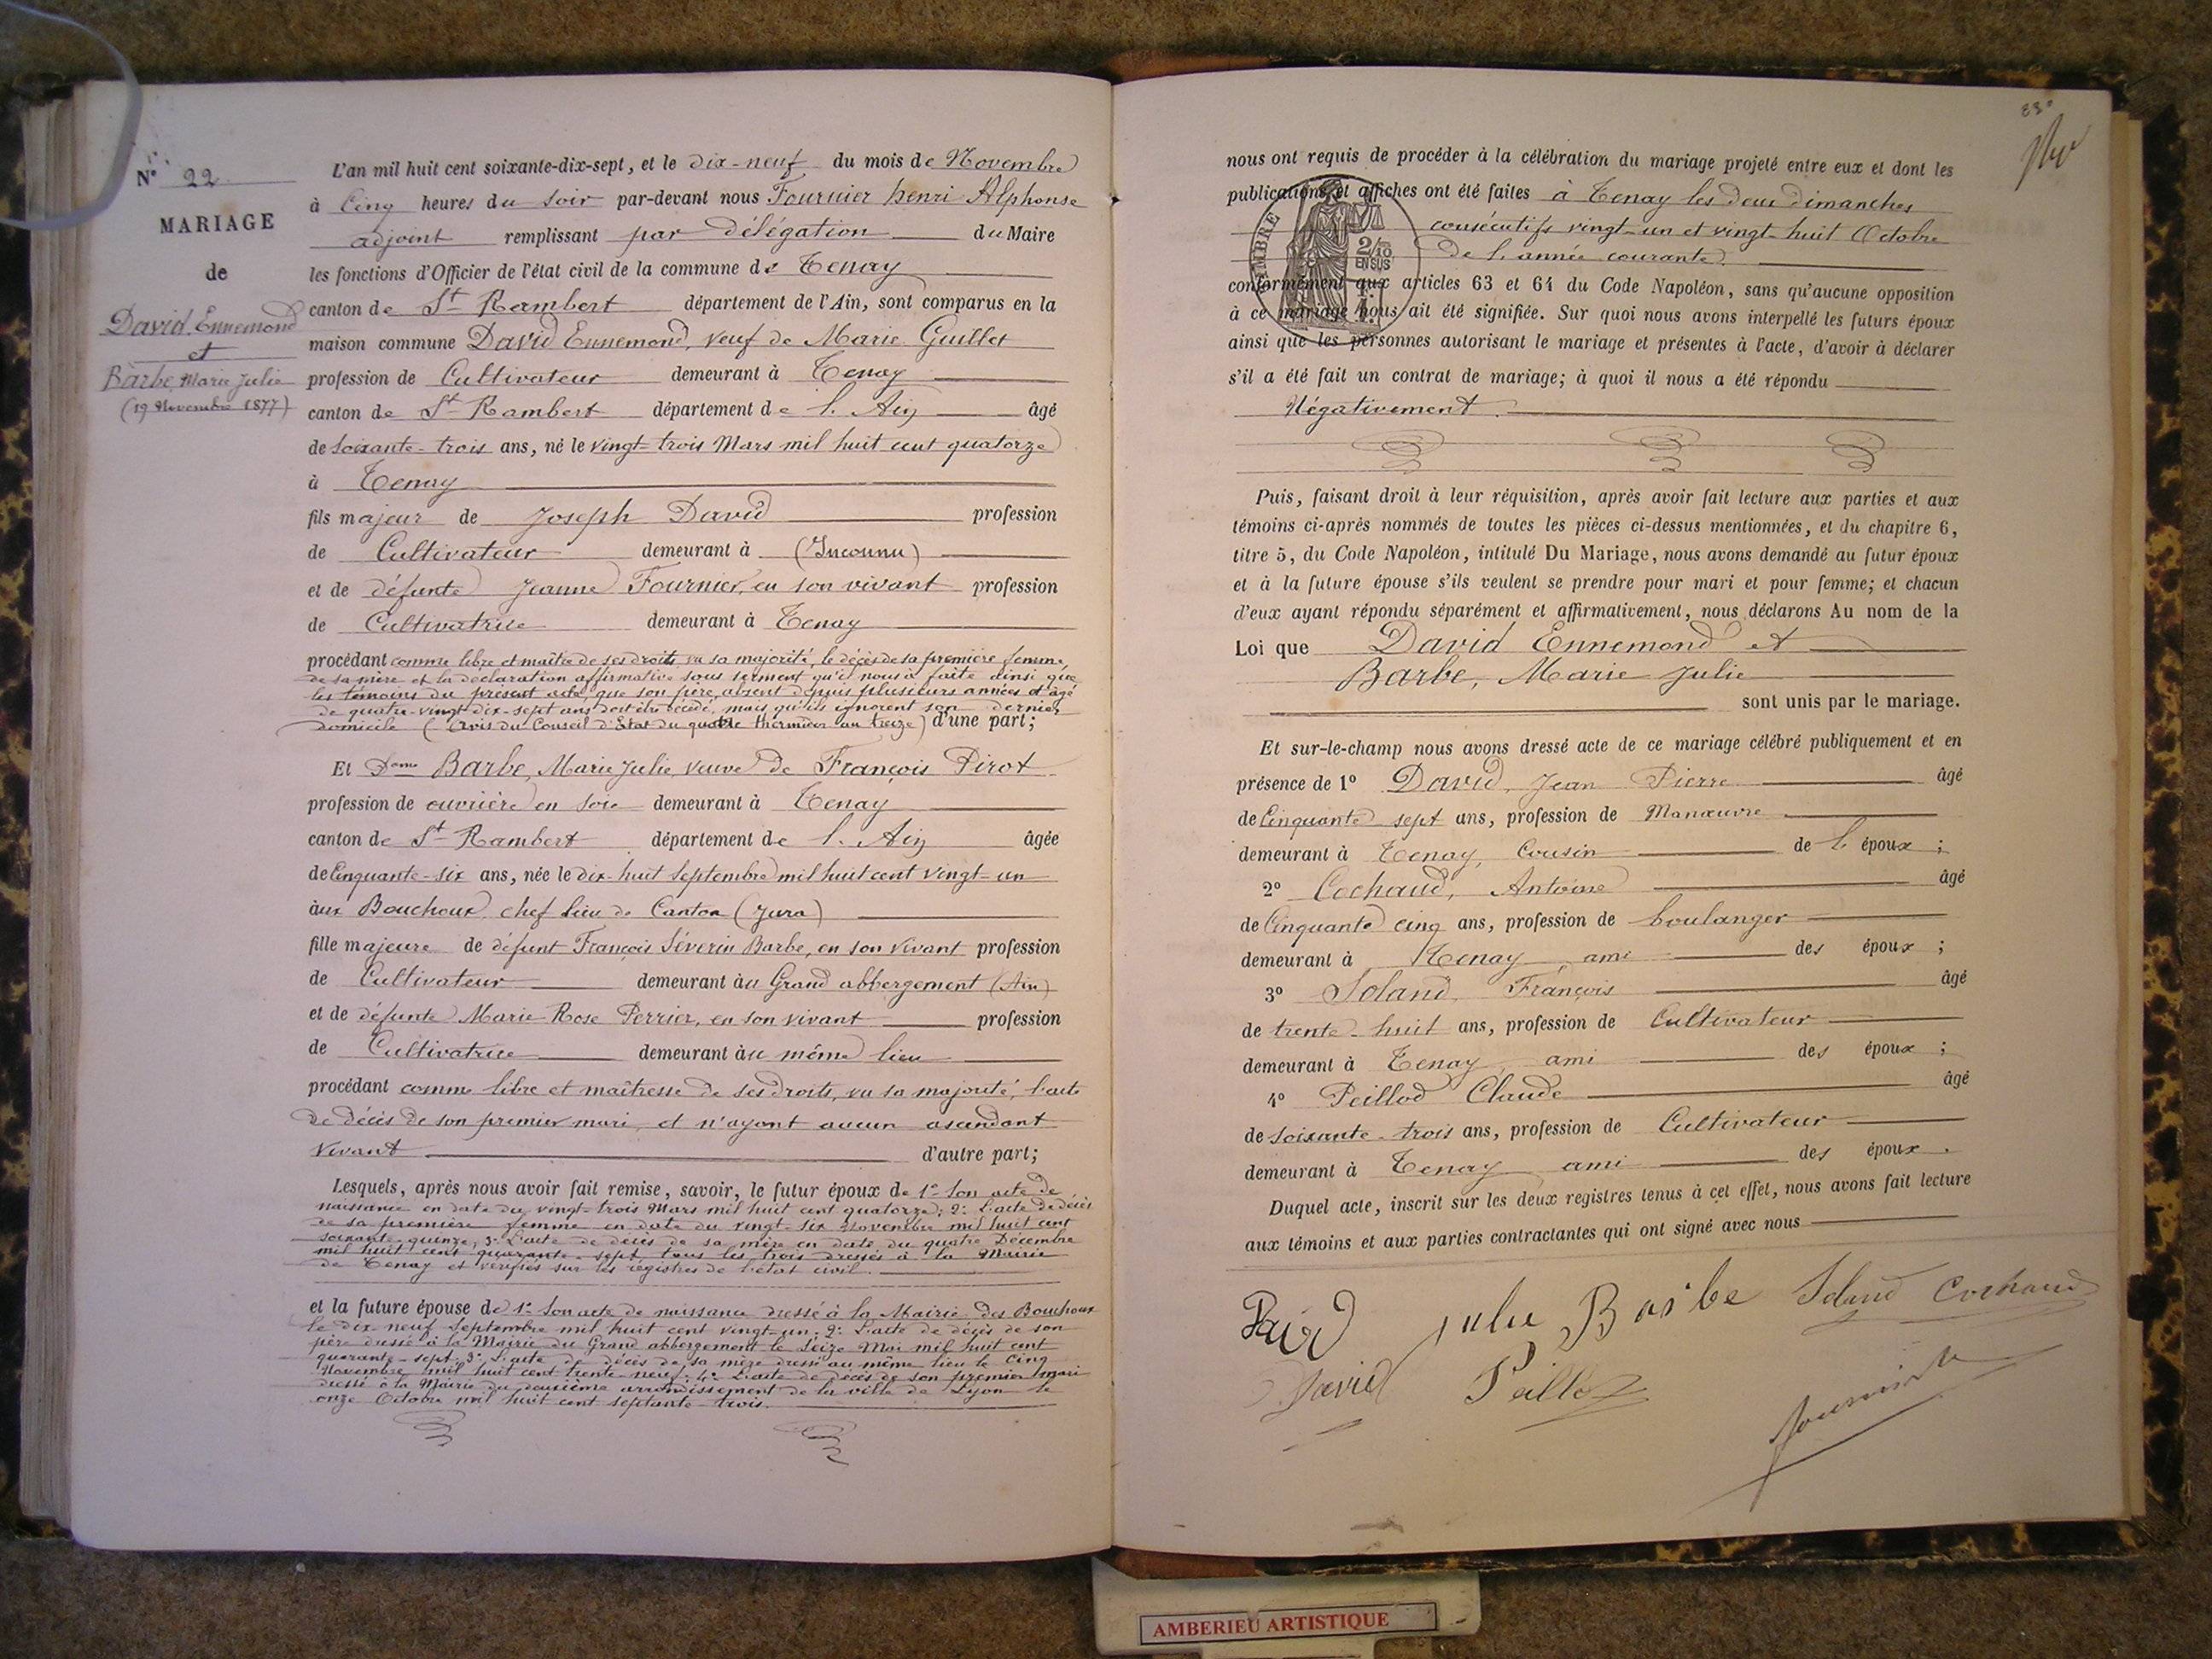 N° 22
MARIAGE
de
David Ennemond
et
Barbe Marie Julie
(19 Novembre 1877)
L'an mil huit cent soixante-dix-sept, et le dix-neuf du mois de Novembre
à Cinq heures du soir par-devant nous Fournier henri Alphonse
adjoint remplissant par délégation du Maire
les fonctions d'Officier de l'état civil de la commune de Tenay
canton de St Rambert département de l'Ain, sont comparus en la
maison commune David Ennemond, veuf de Marie Guillet
profession de Cultivateur demeurant à Tenay
canton de St Rambert département de l'Ain âgé
de soixante-trois ans, né le vingt-trois Mars mil huit cent quatorze
à Tenay
fils majeur de Joseph David profession
de Cultivateur demeurant à (Inconnu)
et de défunte Jeanne Fournier, en son vivant profession
de Cultivatrice demeurant à Tenay
procédant comme libre et maître de ses droits vu sa majorité, le décès de sa première femme,
de sa mère et la déclaration affirmative sous serment qu'il nous a faite ainsi que
les témoins du présent acte, que son père, absent depuis plusieurs années et âgé
de quatre-vingt-dix-sept ans doit être décédé, mais qu'ils ignorent son dernier
domicile (Avis du Conseil d'Etat du quatre thermidor an treize) d'une part;
Et Dame Barbe, Marie Julie, veuve de François Pirot
profession de ouvrière en soie demeurant à Tenay
canton de St Rambert département de l'Ain âgée
de Cinquante-six ans, née le dix-huit Septembre mil huit cent vingt-un
aux Bouchoux, chef lieu de Canton (Jura)
fille majeure de défunt François Séverin Barbe, en son vivant profession
de Cultivateur demeurant au Grand abbergement (Ain)
et de défunte Marie Rose Perrier, en son vivant profession
de Cultivatrice demeurant au même lieu
procédant comme libre et maîtresse de ses droits, vu sa majorité, l'acte
de décès de son premier mari, et n'ayant aucun ascendant
vivant d'autre part;
Lesquels, après nous avoir fait remise, savoir, le futur époux de 1° Son acte de
naissance en date du vingt-trois Mars mil huit cent quatorze; 2° L'acte de décès
de sa première femme en date du vingt-six Novembre mil huit cent
soixante-quinze; 3° L'acte de décès de sa mère en date du quatre Décembre
mil huit cent quarante-sept, tous les trois dressés à la Mairie
de Tenay et vérifiés sur les régistres de l'état civil.
et la future épouse de 1° Son acte de naissance dressé à la Mairie des Bouchoux
le dix-neuf Septembre mil huit cent vingt-un; 2° L'acte de décès de son
père dressé à la Mairie du Grand abbergement le seize Mai mil huit cent
quarante-sept; 3° L'acte de décès de sa mère dressé au même lieu le cinq
Novembre mil huit cent trente-neuf; 4° L'acte de décès de son premier mari
dressé à la Mairie du deuxième arrondissement de la ville de Lyon le
onze Octobre mil huit cent septante-trois.
nous ont requis de procéder à la célébration du mariage projeté entre eux et dont les
publications et affiches ont été faites à Tenay les deux dimanches
consécutifs vingt-un et vingt-huit Octobre
de l'année courante.
TIMBRE
2/10
EN SUS
conformément aux articles 63 et 64 du Code Napoléon, sans qu'aucune opposition
à ce mariage nous ait été signifiée. Sur quoi nous avons interpellé les futurs époux
ainsi que les personnes autorisant le mariage et présentes à l'acte, d'avoir à déclarer
s'il a été fait un contrat de mariage; à quoi il nous a été répondu
Négativement.
Puis, faisant droit à leur réquisition, après avoir fait lecture aux parties et aux
témoins ci-après nommés de toutes les pièces ci-dessus mentionnées, et du chapitre 6,
titre 5, du Code Napoléon, intitulé Du Mariage, nous avons demandé au futur époux
et à la future épouse s'ils veulent se prendre pour mari et pour femme; et chacun
d'eux ayant répondu séparément et affirmativement, nous déclarons Au nom de la
Loi que David Ennemond et
Barbe, Marie Julie
sont unis par le mariage.
Et sur-le-champ nous avons dressé acte de ce mariage célébré publiquement et en
présence de 1° David, Jean Pierre âgé
de Cinquante sept ans, profession de Manœuvre
demeurant à Tenay, Cousin de l'époux;
2° Cochaud, Antoine âgé
de Cinquante cinq ans, profession de boulanger
demeurant à Tenay ami des époux;
3° Soland, François âgé
de trente-huit ans, profession de Cultivateur
demeurant à Tenay, ami des époux;
4° Peillod Claude âgé
de soixante-trois ans, profession de Cultivateur
demeurant à Tenay ami des époux.
Duquel acte, inscrit sur les deux registres tenus à cet effet, nous avons fait lecture
aux témoins et aux parties contractantes qui ont signé avec nous
David Julie Barbe Soland Cochaud
David Peillod
fournier
AMBERIEU ARTISTIQUE